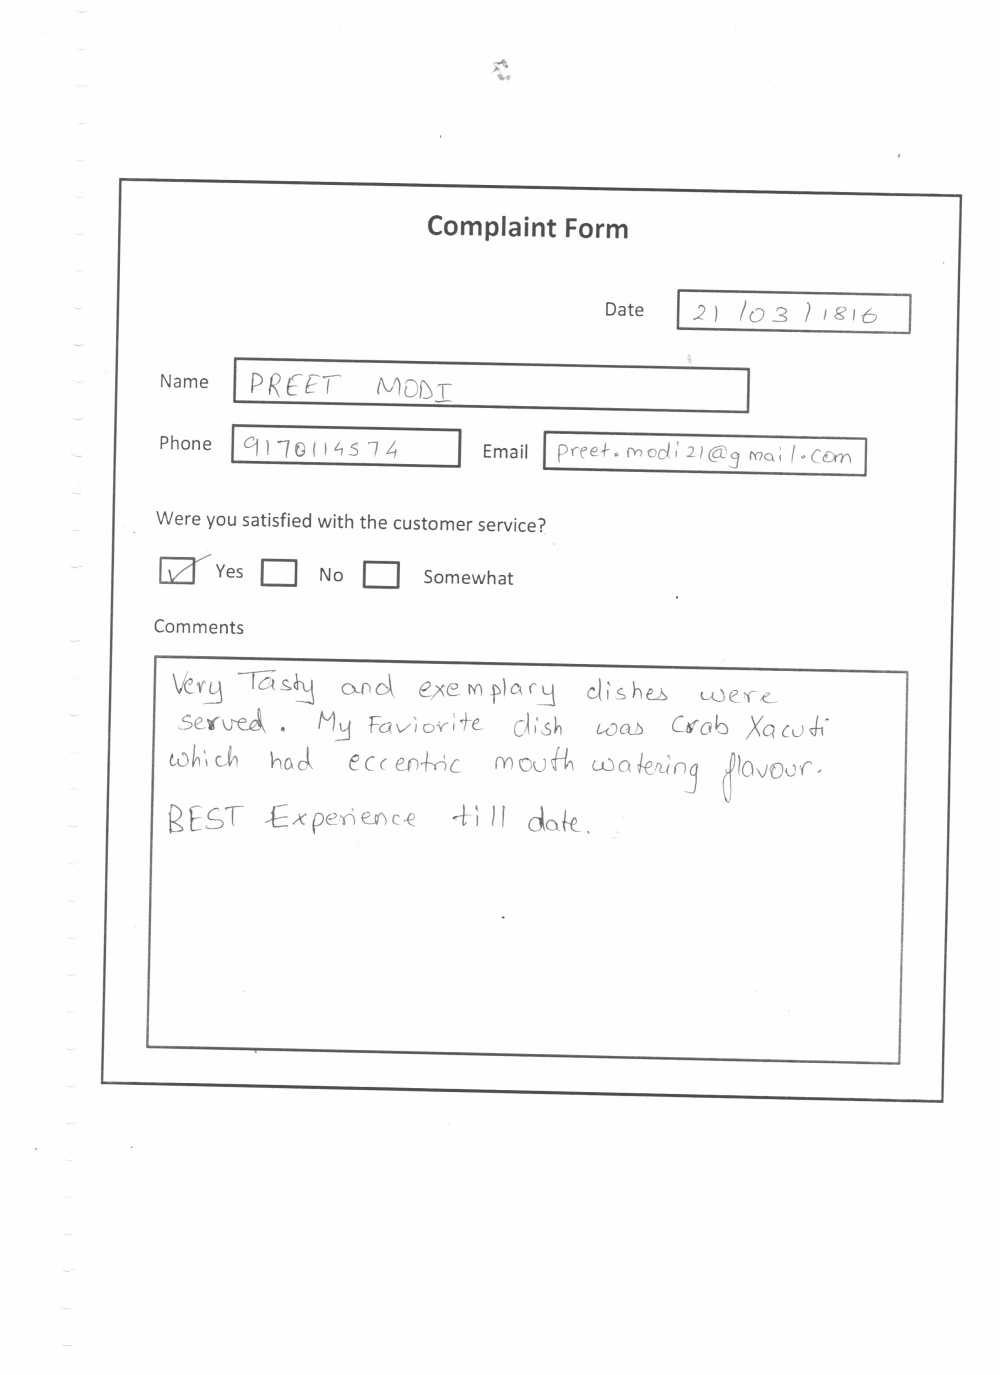 Complaint Form
Date 21/03/1816
Name PREET MODI
Phone 9170114574 Email preet.modi21@gmail.com
Were you satisfied with the customer service?
Yes No Somewhat
Comments
Very Tasty and exemplary dishes were
served. My Faviorite dish was Crab Xacuti
which had eccentric mouth watering flavour.
BEST Experience till date.